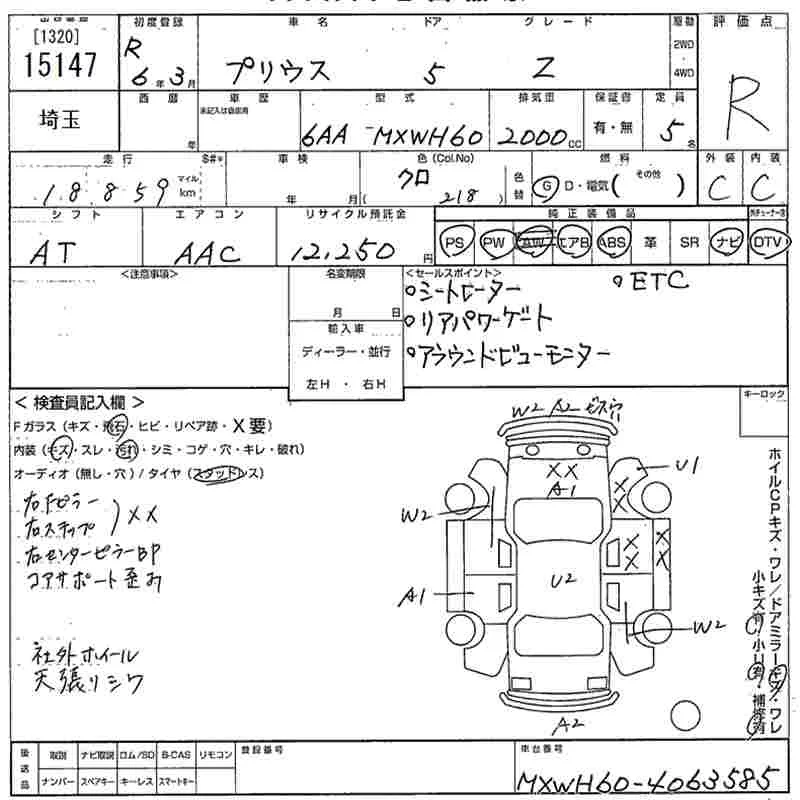 初度登録 車名 ドア グレード 駆動 評価点
[1320]
15147
R
6年3月
プリウス 5 Z
2WD
4WD
R
埼玉
西暦 車歴 型式 排気量 保証書 定員
未記入は自家用
年 6AA MXWH60 2000cc 有・無 5名
走行 S#* 車検 色(Col.No) 燃料 外装 内装
18859 マイル km 年 月 クロ (218) 色替 G D・電気(その他) C C
シフト エアコン リサイクル預託金 純正装備品
AT AAC 12,250円 PS PW AW エアB ABS 革 SR ナビ DTV
<注意事項> 名変期限 <セールスポイント>
月 日
・シートヒーター ・ETC
・リアパワーゲート
・アラウンドビューモニター
輸入車
ディーラー・並行
左H・右H
<検査員記入欄> キーロック
Fガラス(キズ・飛石・ヒビ・リペア跡・X要)
内装(キズ・スレ・汚れ・シミ・コゲ・穴・キレ・破れ)
オーディオ(無し・穴)/タイヤ(スタッドレス)
右Fピラー
右ステップ
XX
右センターピラーBP
コアサポート歪み
社外ホイール
天張りシワ
W2 A2 ビス穴
XX
A1
U1
XX
W2
XX
XX
A1
U2
W2
A2
ホイルCPキズ・ワレ/ドアミラーキズ・ワレ
小キズ有・小U有・補修有
後送品 取説 ナビ取説 ロム/SD B-CAS リモコン 登録番号 車台番号
ナンバー スペアキー キーレス スマートキー
MXWH60-4063585